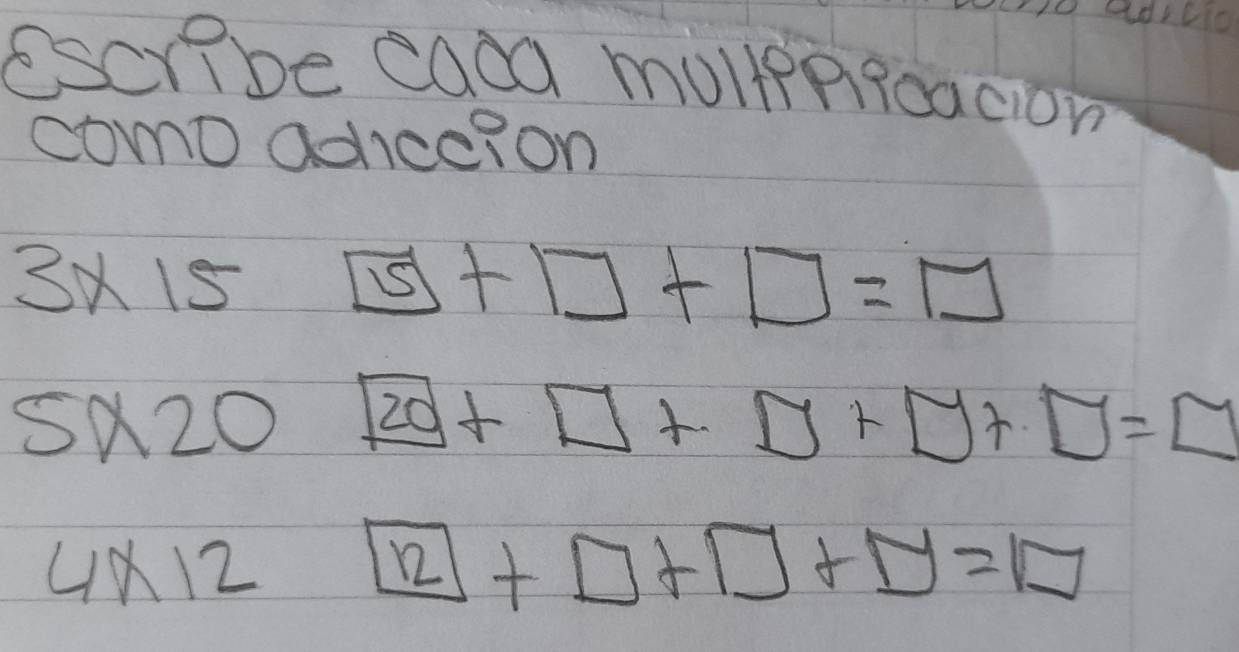 Escribe cada multiplicacion
como adiccion
3x15 15 + □ + □ = □
5x20 20 + □ + □ + □ + □ = □
4x12 12 + □ + □ + □ = □